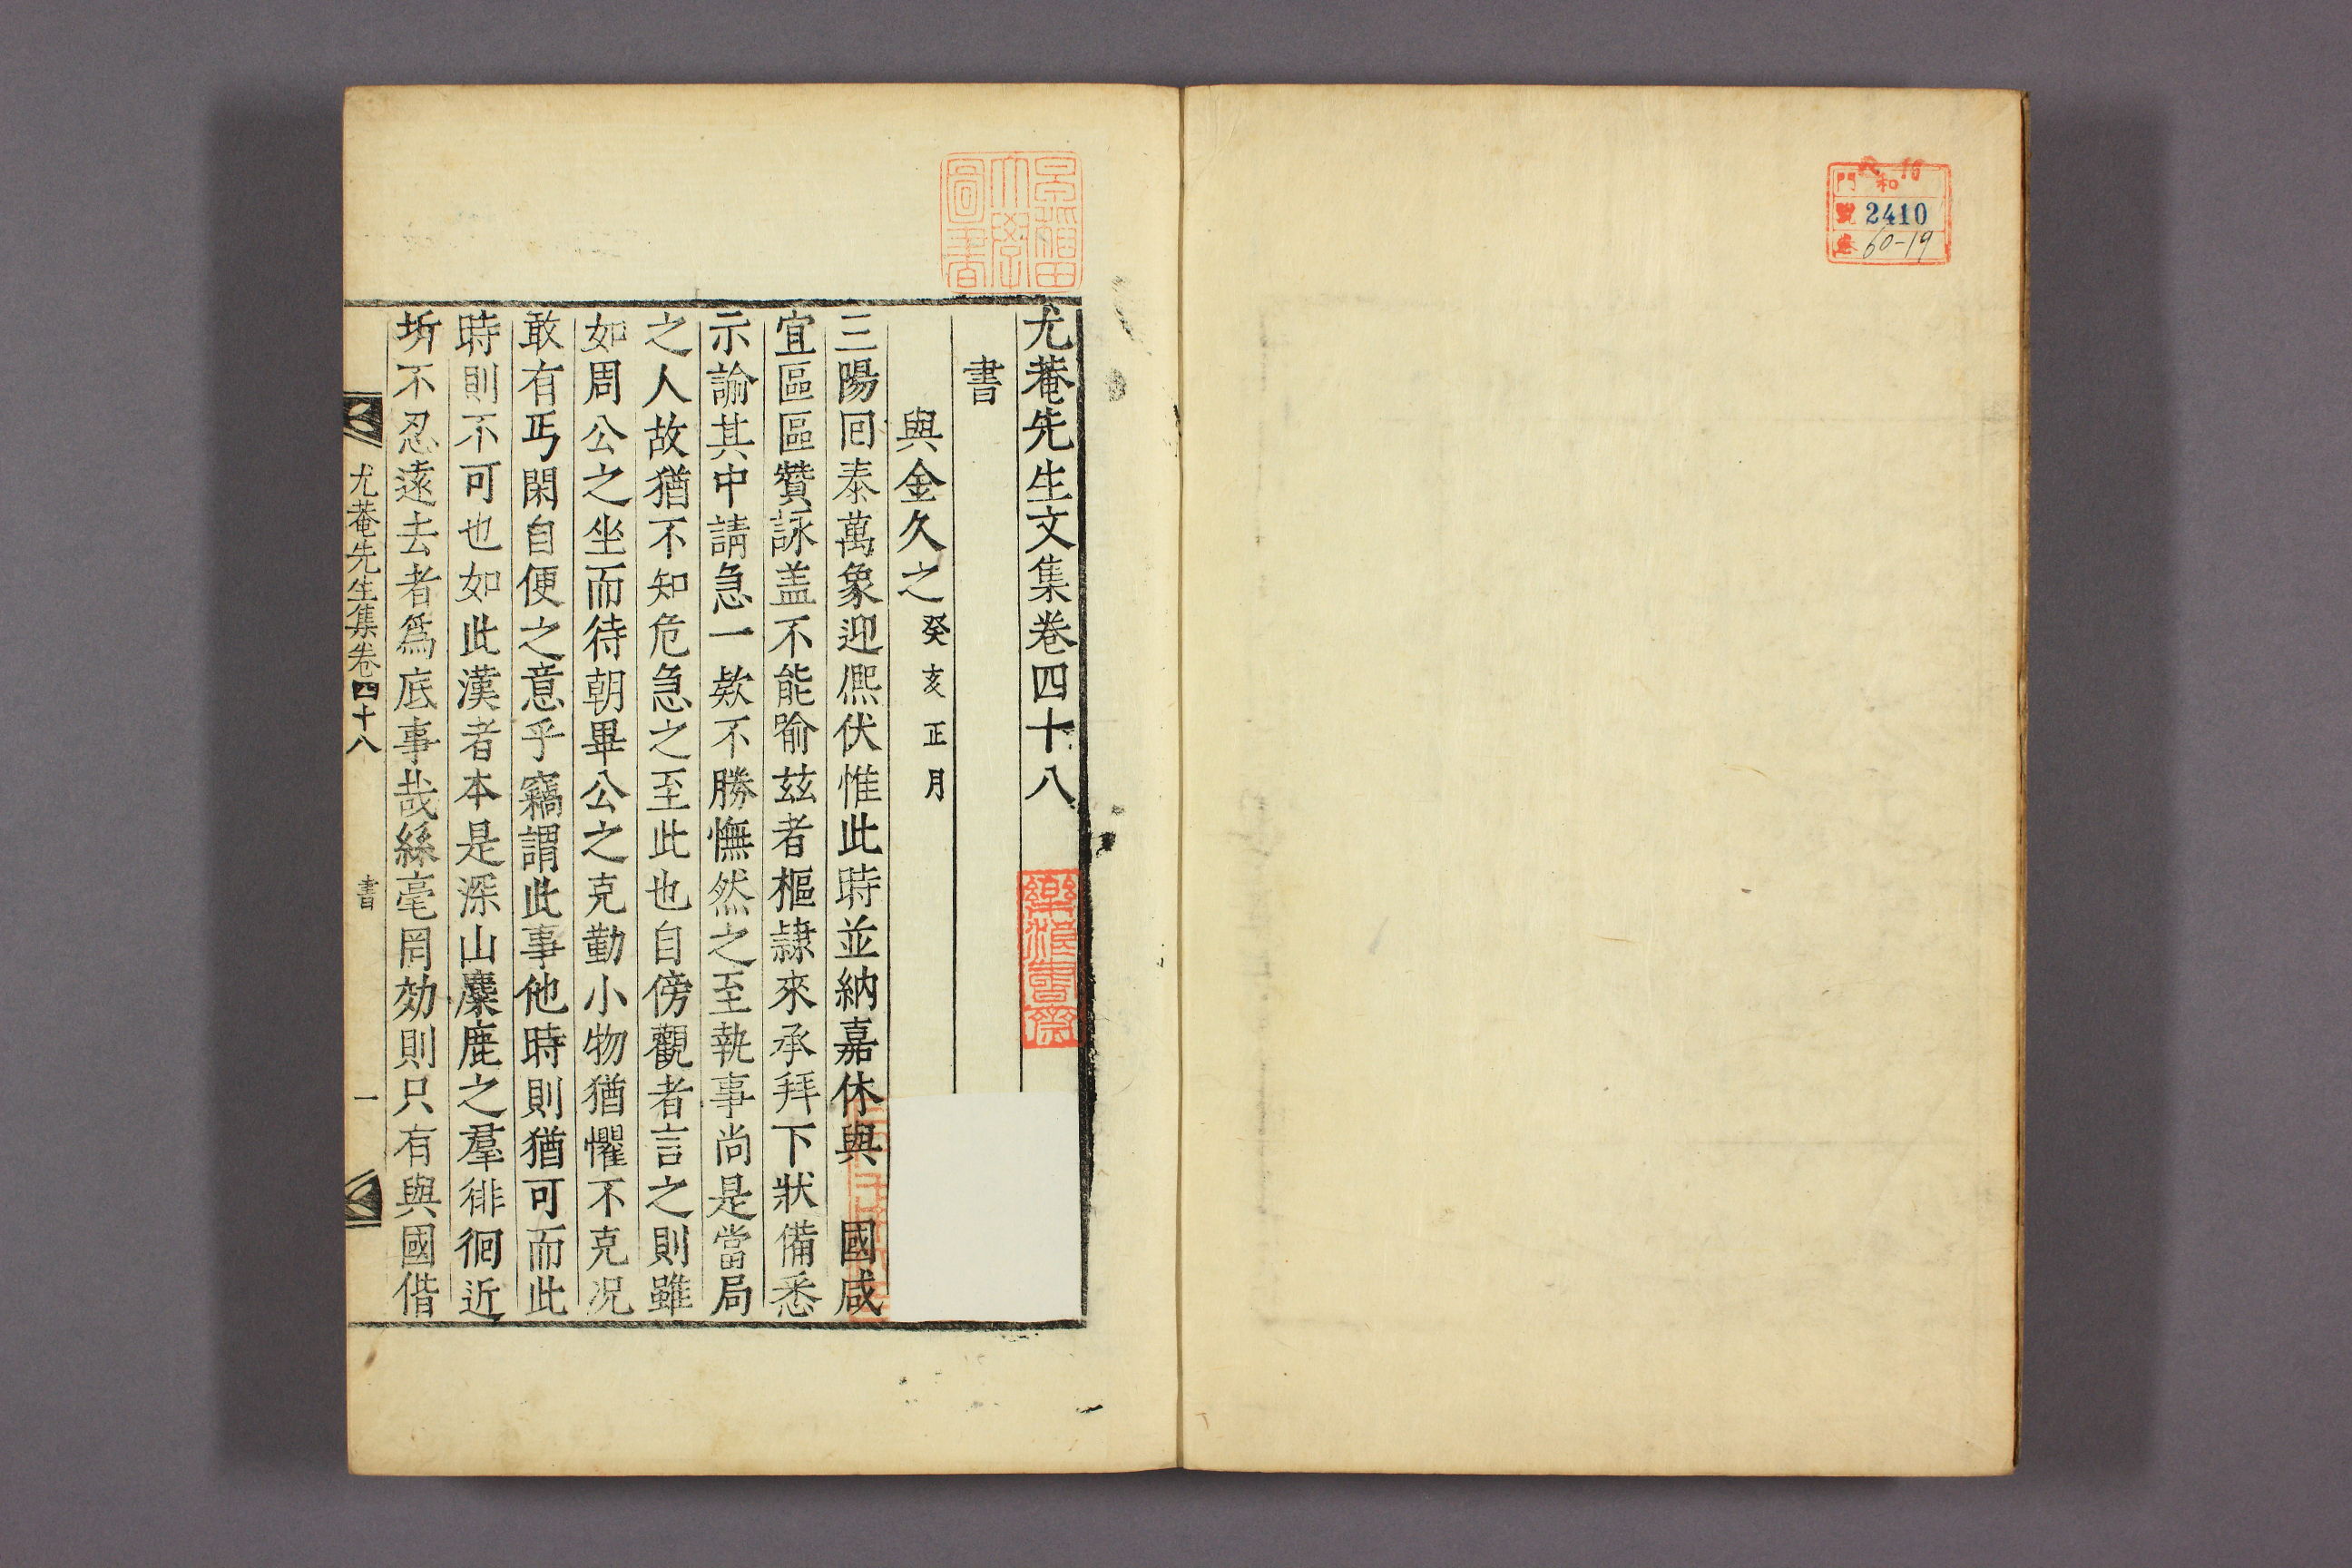 民 16
門 和
號 2410
巻 60-19
尤菴先生文集卷四十八
書
與金久之 癸亥正月
三陽回泰萬象迎凞伏惟此時並納嘉休與 國咸
宜區區贊詠盖不能踰玆者樞隷來承拜下狀備悉
示諭其中請急一欵不勝憮然之至執事尚是當局
之人故猶不知危急之至此也自傍觀者言之則雖
如周公之坐而待朝畢公之克勤小物猶懼不克况
敢有丐閑自便之意乎竊謂此事他時則猶可而此
時則不可也如此漢者本是深山麋鹿之羣徘徊近
圻不忍遠去者爲底事哉絲毫罔効則只有與國偕
尤菴先生集卷四十八 書 一